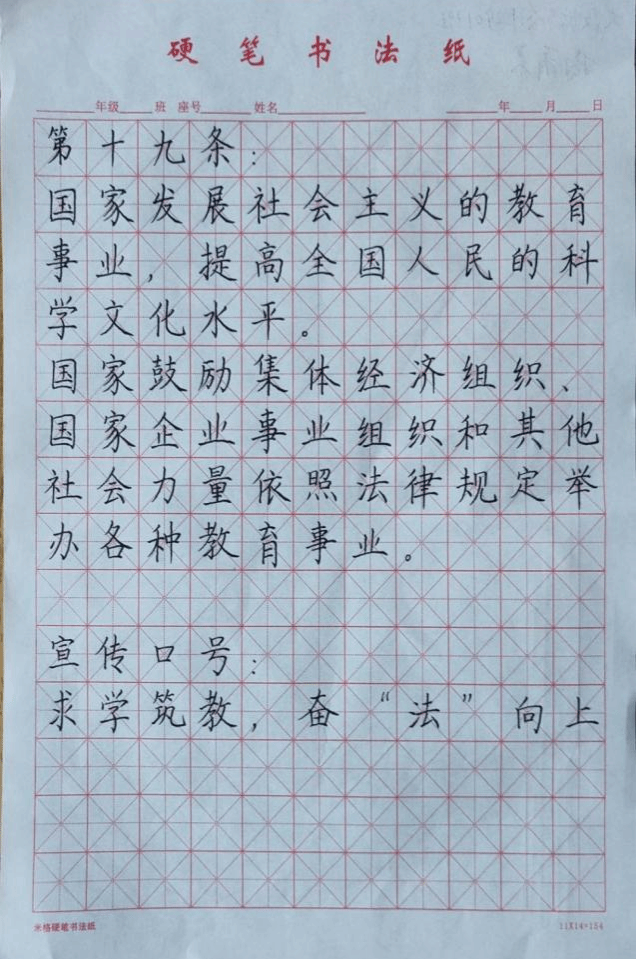 硬笔书法纸
年级 班 座号 姓名 年 月 日
第十九条：
国家发展社会主义的教育
事业，提高全国人民的科
学文化水平。
国家鼓励集体经济组织、
国家企业事业组织和其他
社会力量依照法律规定举
办各种教育事业。
宣传口号：
求学筑教，奋“法”向上
米格硬笔书法纸 11X14=154